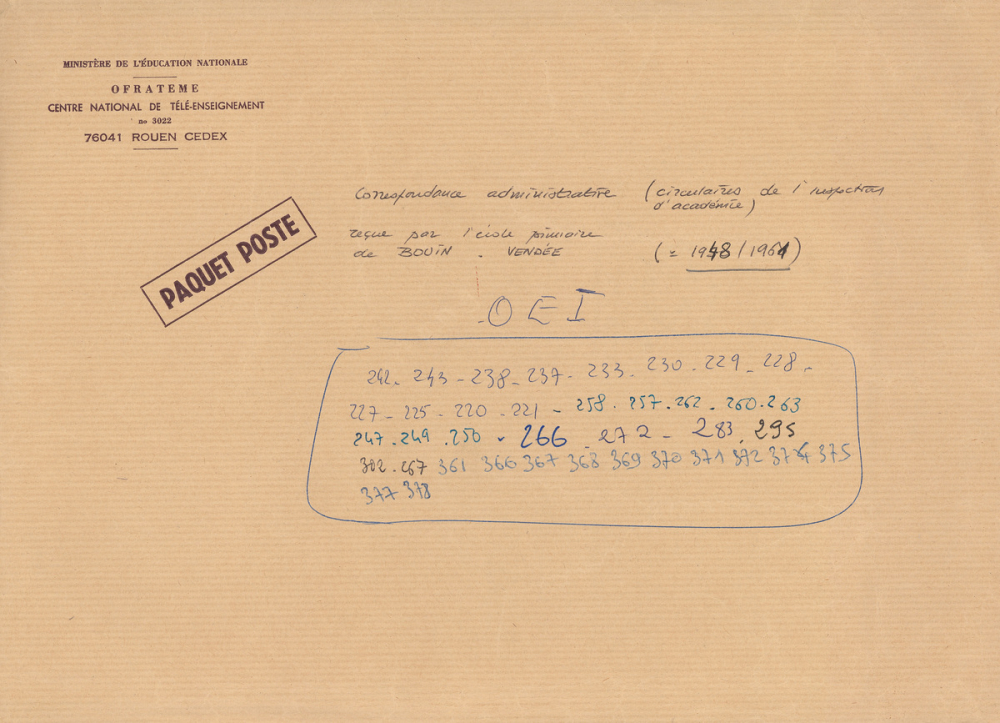 MINISTÈRE DE L'ÉDUCATION NATIONALE
OFRATEME
CENTRE NATIONAL DE TÉLÉ-ENSEIGNEMENT
no 3022
76041 ROUEN CEDEX
PAQUET POSTE
Correspondance administrative (circulaires de l'inspection
d'académie)
reçue par l'école primaire
de BOUIN - VENDÉE (= 1948 / 1961)
OEI
242 - 243 - 238 - 237 - 233 - 230 - 229 - 228 -
227 - 225 - 220 - 221 - 258 - 257 - 262 - 260 - 263
247 - 249 - 250 - 266 - 272 - 283 - 295
302 - 267 361 366 367 368 369 370 371 372 374 375
377 378